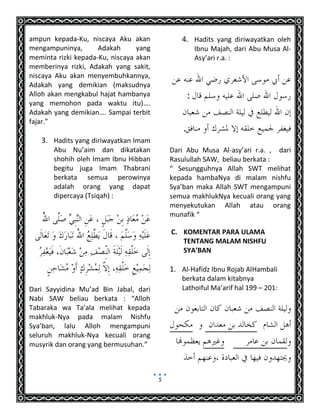 ampun kepada-Ku, niscaya Aku akan
mengampuninya, Adakah yang
meminta rizki kepada-Ku, niscaya akan
memberinya rizki, Adakah yang sakit,
niscaya Aku akan menyembuhkannya,
Adakah yang demikian (maksudnya
Alloh akan mengkabul hajat hambanya
yang memohon pada waktu itu)….
Adakah yang demikian…. Sampai terbit
fajar.”
3. Hadits yang diriwayatkan Imam
Abu Nu’aim dan dikatakan
shohih oleh Imam Ibnu Hibban
begitu juga Imam Thabrani
berkata semua perowinya
adalah orang yang dapat
dipercaya (Tsiqah) :
عَنْ مُعَاذِ بْنِ جَبَلٍ ، عَنِ النَّبِيِّ صَلَّى اللهُ
عَلَيْهِ وَسَلَّمَ ، قَالَ يَطَّلِعُ اللهُ تَبَارَكَ وَ تَعَالَى
إِلَى خَلْقِهِ لَيْلَةَ النِّصْفِ مِنْ شَعْبَانَ، فَيَغْفِرُ
لِجَمِيْعِ خَلْقِهِ، إِلاَّ لِمُشْرِكٍ أَوْ مُشَاحِنٍ
Dari Sayyidina Mu’ad Bin Jabal, dari
Nabi SAW beliau berkata : “Alloh
Tabaraka wa Ta’ala melihat kepada
makhluk-Nya pada malam Nishfu
Sya’ban, lalu Alloh mengampuni
seluruh makhluk-Nya kecuali orang
musyrik dan orang yang bermusuhan.”
4. Hadits yang diriwayatkan oleh
Ibnu Majah, dari Abu Musa Al-
Asy’ari r.a. :
عن أبي موسى الأشعري رضي الله عنه عن
رسول الله صلى الله عليه وسلم قال :
إن الله ليطلع في ليلة النصف من شعبان
فيغفر لجميع خلقه إلا لمشرك أو منافق.
Dari Abu Musa Al-asy’ari r.a. , dari
Rasulullah SAW, beliau berkata :
“ Sesungguhnya Allah SWT melihat
kepada hambaNya di malam nishfu
Sya’ban maka Allah SWT mengampuni
semua makhlukNya kecuali orang yang
menyekutukan Allah atau orang
munafik “
C. KOMENTAR PARA ULAMA
TENTANG MALAM NISHFU
SYA’BAN
1. Al-Hafidz Ibnu Rojab AlHambali
berkata dalam kitabnya
Lathoiful Ma’arif hal 199 – 201:
وليلة النصف من شعبان كان التابعون من
أهل الشام كخالد بن معدان و مكحول
ولقمان بن عامر وغيرهم يعظمونها
ويجتهدون فيها في العبادة ،وعنهم أخذ
5